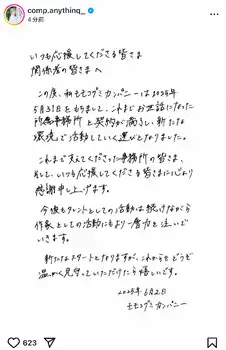 comp.anythinq_
4分前
いつも応援してくださる皆さま
関係者の皆さまへ
この度、私モモコグミカンパニーは2025年
5月31日をもちまして、これまでお世話になった
所属事務所と契約が満了し、新たな
環境で活動していく運びとなりました。
これまで支えてくださった事務所の皆さま、
そして、いつも応援してくださる皆さまに心より
感謝申し上げます。
今後もタレントとしての活動は続けながら
作家としての活動にもより一層力を注いで
いきます。
新たなスタートとなりますが、これからもどうぞ
温かく見守っていただけたら嬉しいです。
2025年6月2日
モモコグミカンパニー
623
1